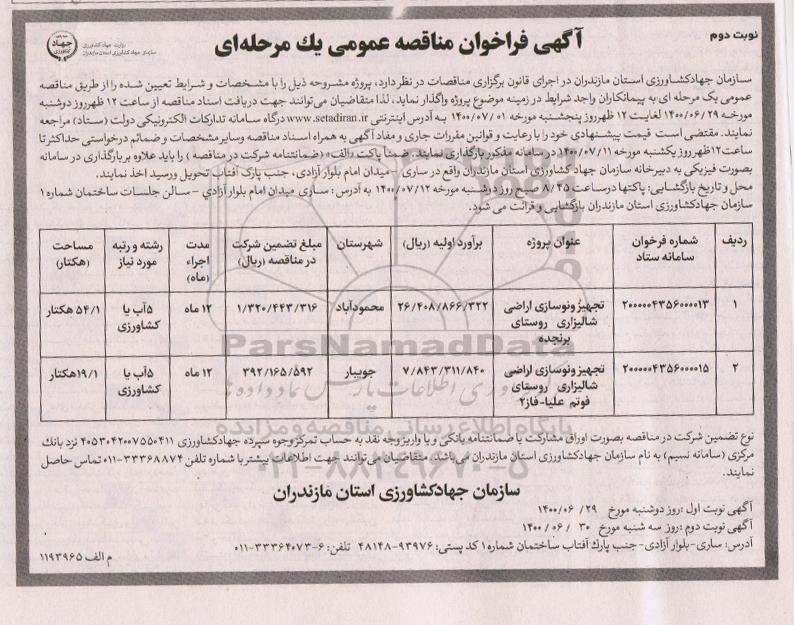 نوبت دوم
آگهی فراخوان مناقصه عمومی یك مرحله‌ای
وزارت جهاد کشاورزی
سازمان جهاد کشاورزی استان مازندران
سازمان جهادکشاورزی استان مازندران در اجرای قانون برگزاری مناقصات در نظر دارد، پروژه مشروحه ذیل را با مشخصات و شرایط تعیین شده را از طریق مناقصه
عمومی یک مرحله ای به پیمانکاران واجد شرایط در زمینه موضوع پروژه واگذار نماید، لذا متقاضیان می‌توانند جهت دریافت اسناد مناقصه از ساعت ۱۲ ظهر روز دوشنبه
مورخه ۱۴۰۰/۰۶/۲۹ لغایت ۱۲ ظهر روز پنجشنبه مورخه ۱۴۰۰/۰۷/۰۱ به آدرس اینترنتی www.setadiran.ir درگاه سامانه تدارکات الکترونیکی دولت (ستاد) مراجعه
نمایند. مقتضی است قیمت پیشنهادی خود را با رعایت و قوانین مقررات جاری و مفاد آگهی به همراه اسناد مناقصه وسایر مشخصات و ضمائم درخواستی حداکثر تا
ساعت ۱۲ ظهر روز یکشنبه مورخه ۱۴۰۰/۰۷/۱۱ در سامانه مذکور بارگذاری نمایند. ضمناً پاکت «الف» (ضمانتنامه شرکت در مناقصه) را باید علاوه بر بارگذاری در سامانه
بصورت فیزیکی به دبیرخانه سازمان جهاد کشاورزی استان مازندران واقع در ساری - میدان امام بلوار آزادی، جنب پارک آفتاب تحویل ورسید اخذ نمایند.
محل و تاریخ بازگشایی: پاکتها درساعت ۸/۴۵ صبح روز دوشنبه مورخه ۱۴۰۰/۰۷/۱۲ به آدرس: ساری میدان امام بلوار آزادی - سالن جلسات ساختمان شماره ۱
سازمان جهادکشاورزی استان مازندران بازگشایی و قرائت می شود.
ردیف شماره فراخوان سامانه ستاد عنوان پروژه برآورد اولیه (ریال) شهرستان مبلغ تضمین شرکت در مناقصه (ریال) مدت اجراء (ماه) رشته و رتبه مورد نیاز مساحت (هکتار)
۱ ۲۰۰۰۰۰۴۳۵۶۰۰۰۰۱۳ تجهیز ونوسازی اراضی شالیزاری روستای برنجده ۲۶/۴۰۸/۸۶۶/۳۲۲ محمودآباد ۱/۳۲۰/۴۴۳/۳۱۶ ۱۲ ماه ۵ آب یا کشاورزی ۵۴/۱ هکتار
۲ ۲۰۰۰۰۰۴۳۵۶۰۰۰۰۱۵ تجهیز ونوسازی اراضی شالیزاری روستای فوتم علیا-فاز۲ ۷/۸۴۳/۳۱۱/۸۴۰ جویبار ۳۹۲/۱۶۵/۵۹۲ ۱۲ ماه ۵ آب یا کشاورزی ۱۹/۱ هکتار
ParsNamadData
پایگاه اطلاع رسانی مناقصه و مزایده
۰۲۱-۸۸۳۴۹۶۷۰-۵
نوع تضمین شرکت در مناقصه بصورت اوراق مشارکت یا ضمانتنامه بانکی و یا واریز وجه نقد به حساب تمرکز وجوه سپرده جهادکشاورزی ۴۰۵۳۰۴۲۰۰۷۵۵۰۴۱۱ نزد بانک
مرکزی (سامانه نسیم) به نام سازمان جهادکشاورزی استان مازندران می‌باشد. متقاضیان می‌توانند جهت اطلاعات بیشتر با شماره تلفن ۳۳۳۶۸۸۷۴-۰۱۱ تماس حاصل
نمایند.
سازمان جهادکشاورزی استان مازندران
آگهی نوبت اول :روز دوشنبه مورخ ۲۹/ ۱۴۰۰/۰۶
آگهی نوبت دوم :روز سه شنبه مورخ ۳۰ / ۰۶ / ۱۴۰۰
آدرس: ساری-بلوار آزادی-جنب پارك آفتاب ساختمان شماره ۱ کد پستی: ۹۳۹۷۶-۴۸۱۴۸ تلفن: ۶-۳۳۳۶۴۰۷۳-۰۱۱
م الف ۱۱۹۳۹۶۵